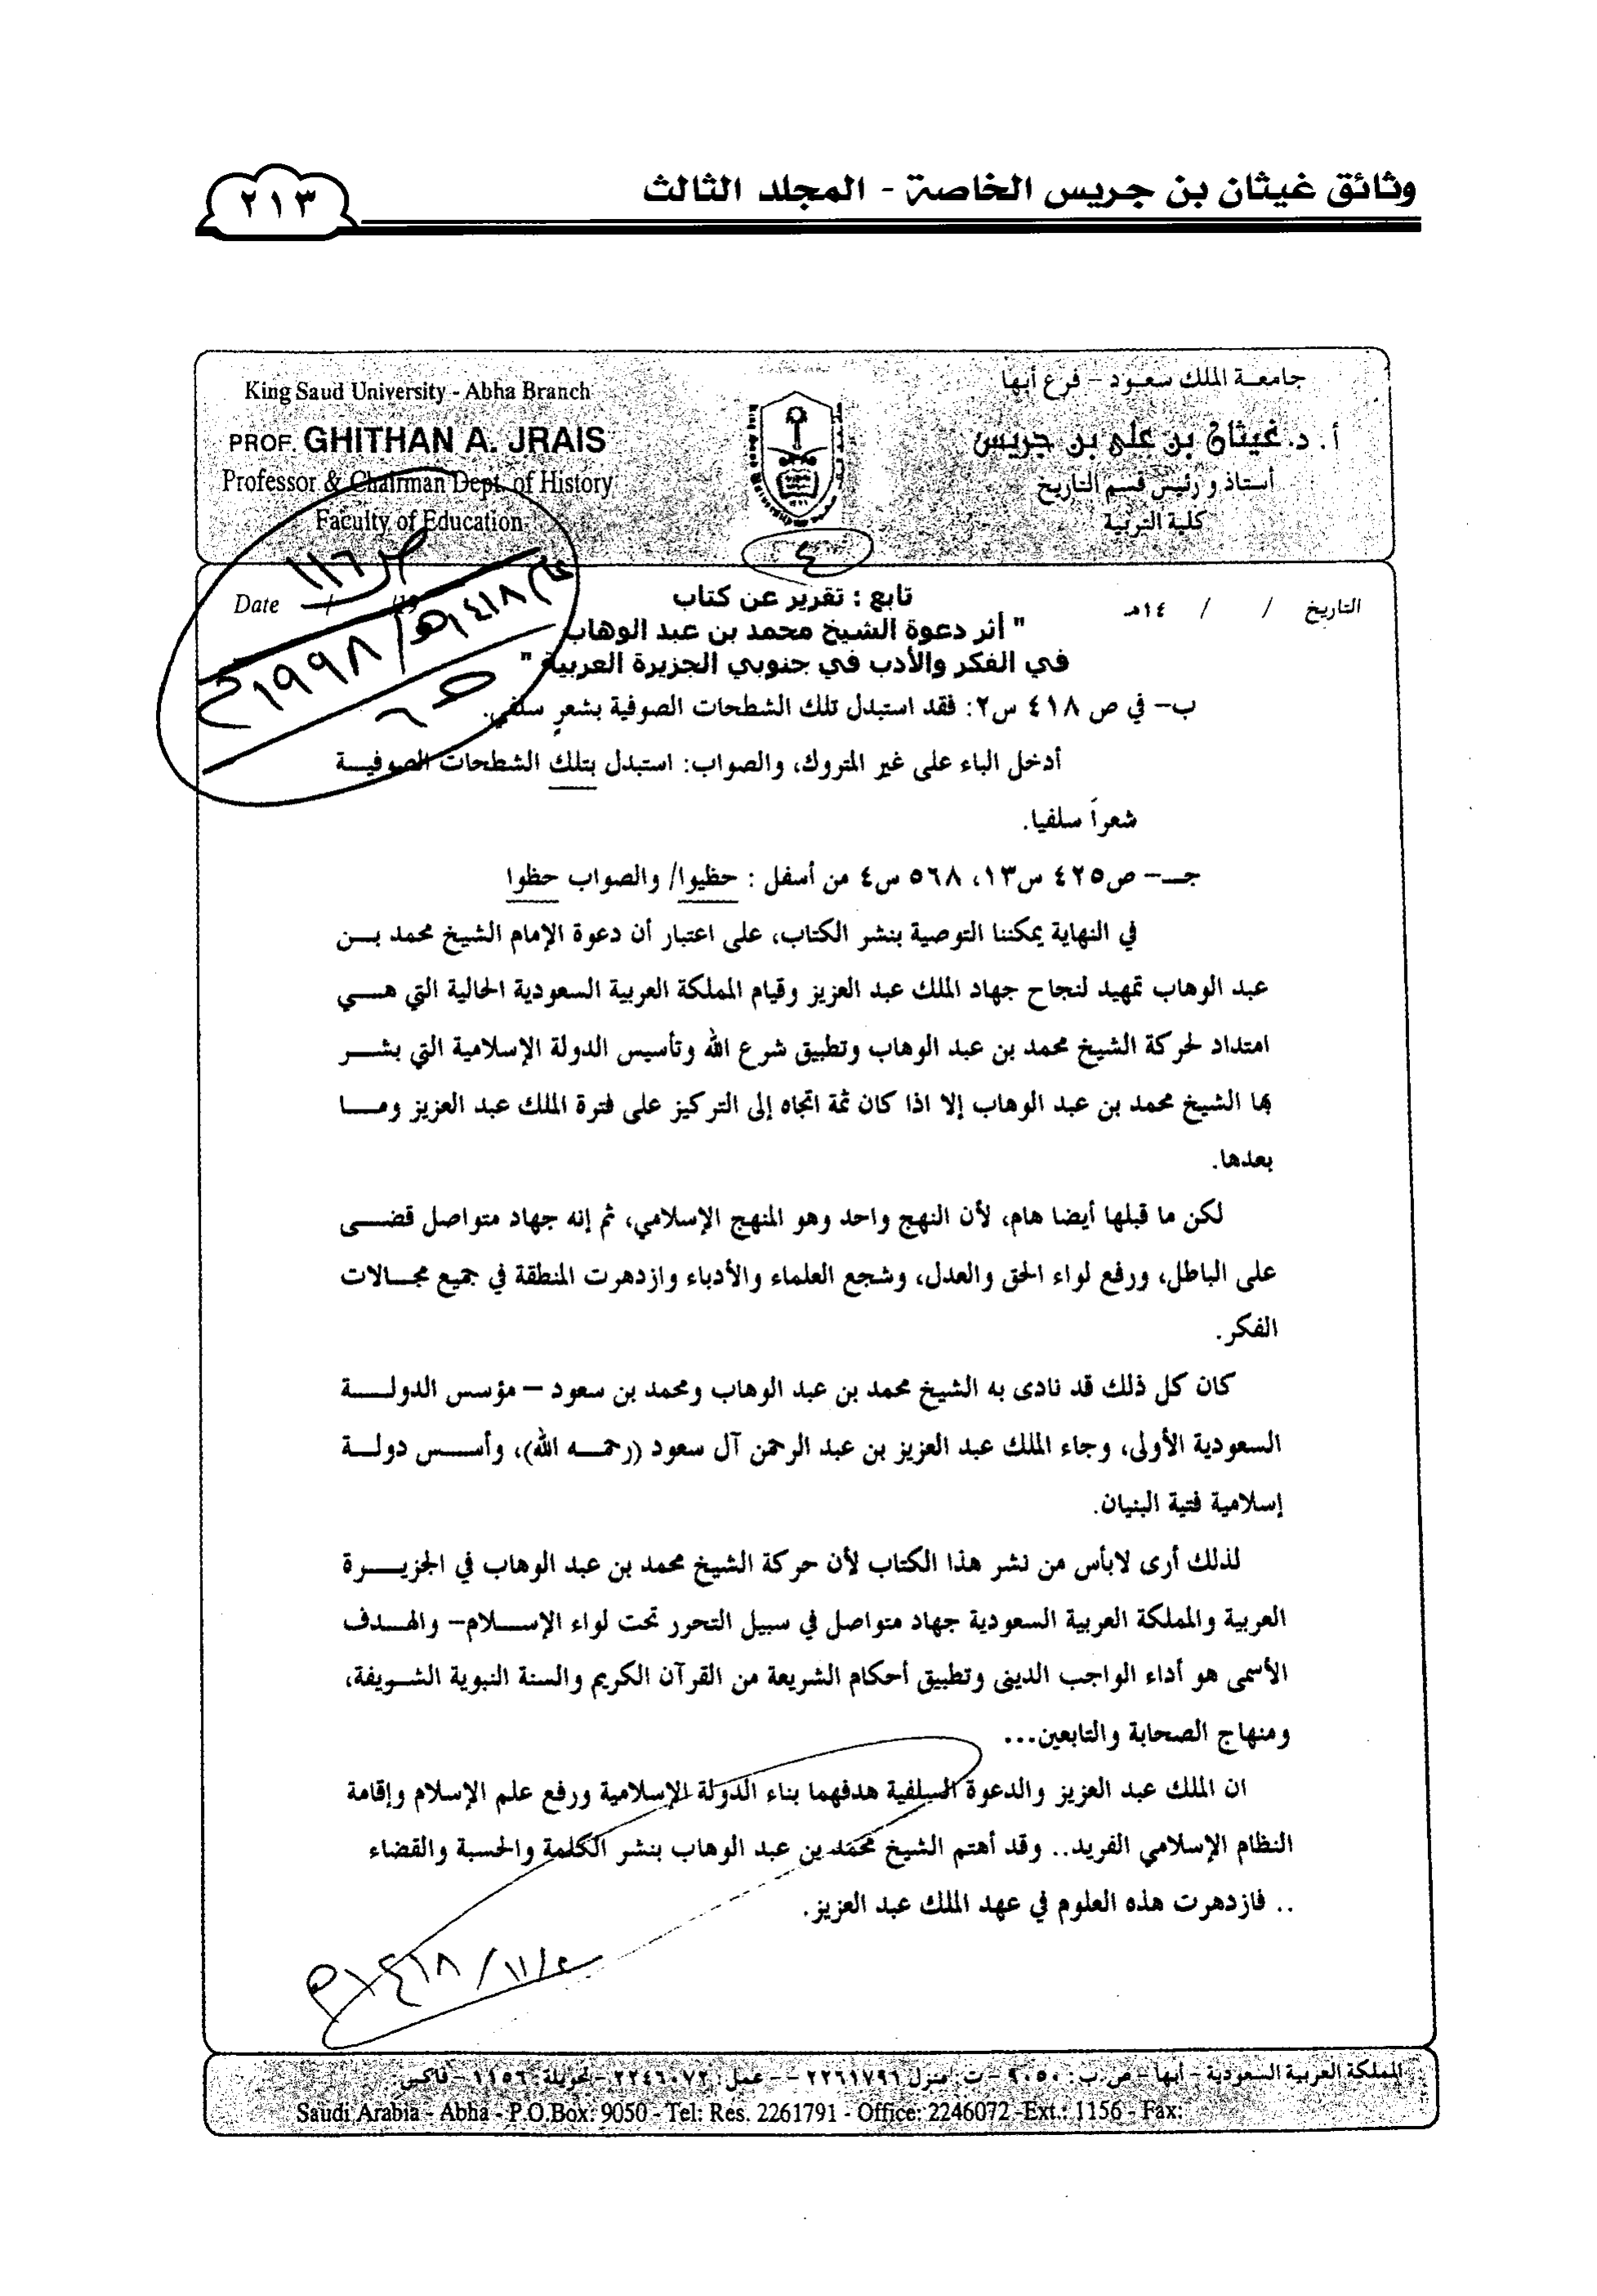 وثائق غيثان بن جريس الخاصة - المجلد الثالث
٢١٣
جامعة الملك سعود - فرع أبها
أ. د. غيثان بن علي بن جريس
أستاذ ورئيس قسم التاريخ
كلية التربية
King Saud University - Abha Branch
PROF. GHITHAN A. JRAIS
Professor & Chairman Dept. of History
Faculty of Education
٤
التاريخ / / ١٤هـ
Date / /19
ص ١١٦
١٤١٨هـ/١٩٩٨م
تابع : تقرير عن كتاب
" أثر دعوة الشيخ محمد بن عبد الوهاب
في الفكر والأدب في جنوبي الجزيرة العربية "
ب- في ص ٤١٨ س٢: فقد استبدل تلك الشطحات الصوفية بشعرٍ سلفي.
أدخل الباء على غير المتروك، والصواب: استبدل بتلك الشطحات الصوفية
شعراً سلفيا.
جـ- ص٤٢٥ س١٣، ٥٦٨ س٤ من أسفل : حظيوا/ والصواب حظوا
في النهاية يمكننا التوصية بنشر الكتاب، على اعتبار أن دعوة الإمام الشيخ محمد بن
عبد الوهاب تمهيد لنجاح جهاد الملك عبد العزيز وقيام المملكة العربية السعودية الحالية التي هي
امتداد لحركة الشيخ محمد بن عبد الوهاب وتطبيق شرع الله وتأسيس الدولة الإسلامية التي بشر
بها الشيخ محمد بن عبد الوهاب إلا اذا كان ثمة اتجاه إلى التركيز على فترة الملك عبد العزيز وما
بعدها.
لكن ما قبلها أيضا هام، لأن النهج واحد وهو المنهج الإسلامي، ثم إنه جهاد متواصل قضى
على الباطل، ورفع لواء الحق والعدل، وشجع العلماء والأدباء وازدهرت المنطقة في جميع مجالات
الفكر.
كان كل ذلك قد نادى به الشيخ محمد بن عبد الوهاب ومحمد بن سعود – مؤسس الدولة
السعودية الأولى، وجاء الملك عبد العزيز بن عبد الرحمن آل سعود (رحمه الله)، وأسس دولة
إسلامية فتية البنيان.
لذلك أرى لابأس من نشر هذا الكتاب لأن حركة الشيخ محمد بن عبد الوهاب في الجزيرة
العربية والمملكة العربية السعودية جهاد متواصل في سبيل التحرر تحت لواء الإسلام- والهدف
الأسمى هو أداء الواجب الديني وتطبيق أحكام الشريعة من القرآن الكريم والسنة النبوية الشريفة،
ومنهاج الصحابة والتابعين...
ان الملك عبد العزيز والدعوة السلفية هدفهما بناء الدولة الإسلامية ورفع علم الإسلام وإقامة
النظام الإسلامي الفريد.. وقد أهتم الشيخ محمد بن عبد الوهاب بنشر الكلمة والحسبة والقضاء
.. فازدهرت هذه العلوم في عهد الملك عبد العزيز.
١٤١٨/١١/٤هـ
المملكة العربية السعودية - أبها - ص.ب: ٩٠٥٠ - ت: منزل ٢٢٦١٧٩١ - - عمل: ٢٢٤٦٠٧٢ - تحويلة: ١١٥٦ - فاكس:
Saudi Arabia - Abha - P.O.Box: 9050 - Tel: Res. 2261791 - Office: 2246072 -Ext.: 1156 - Fax: